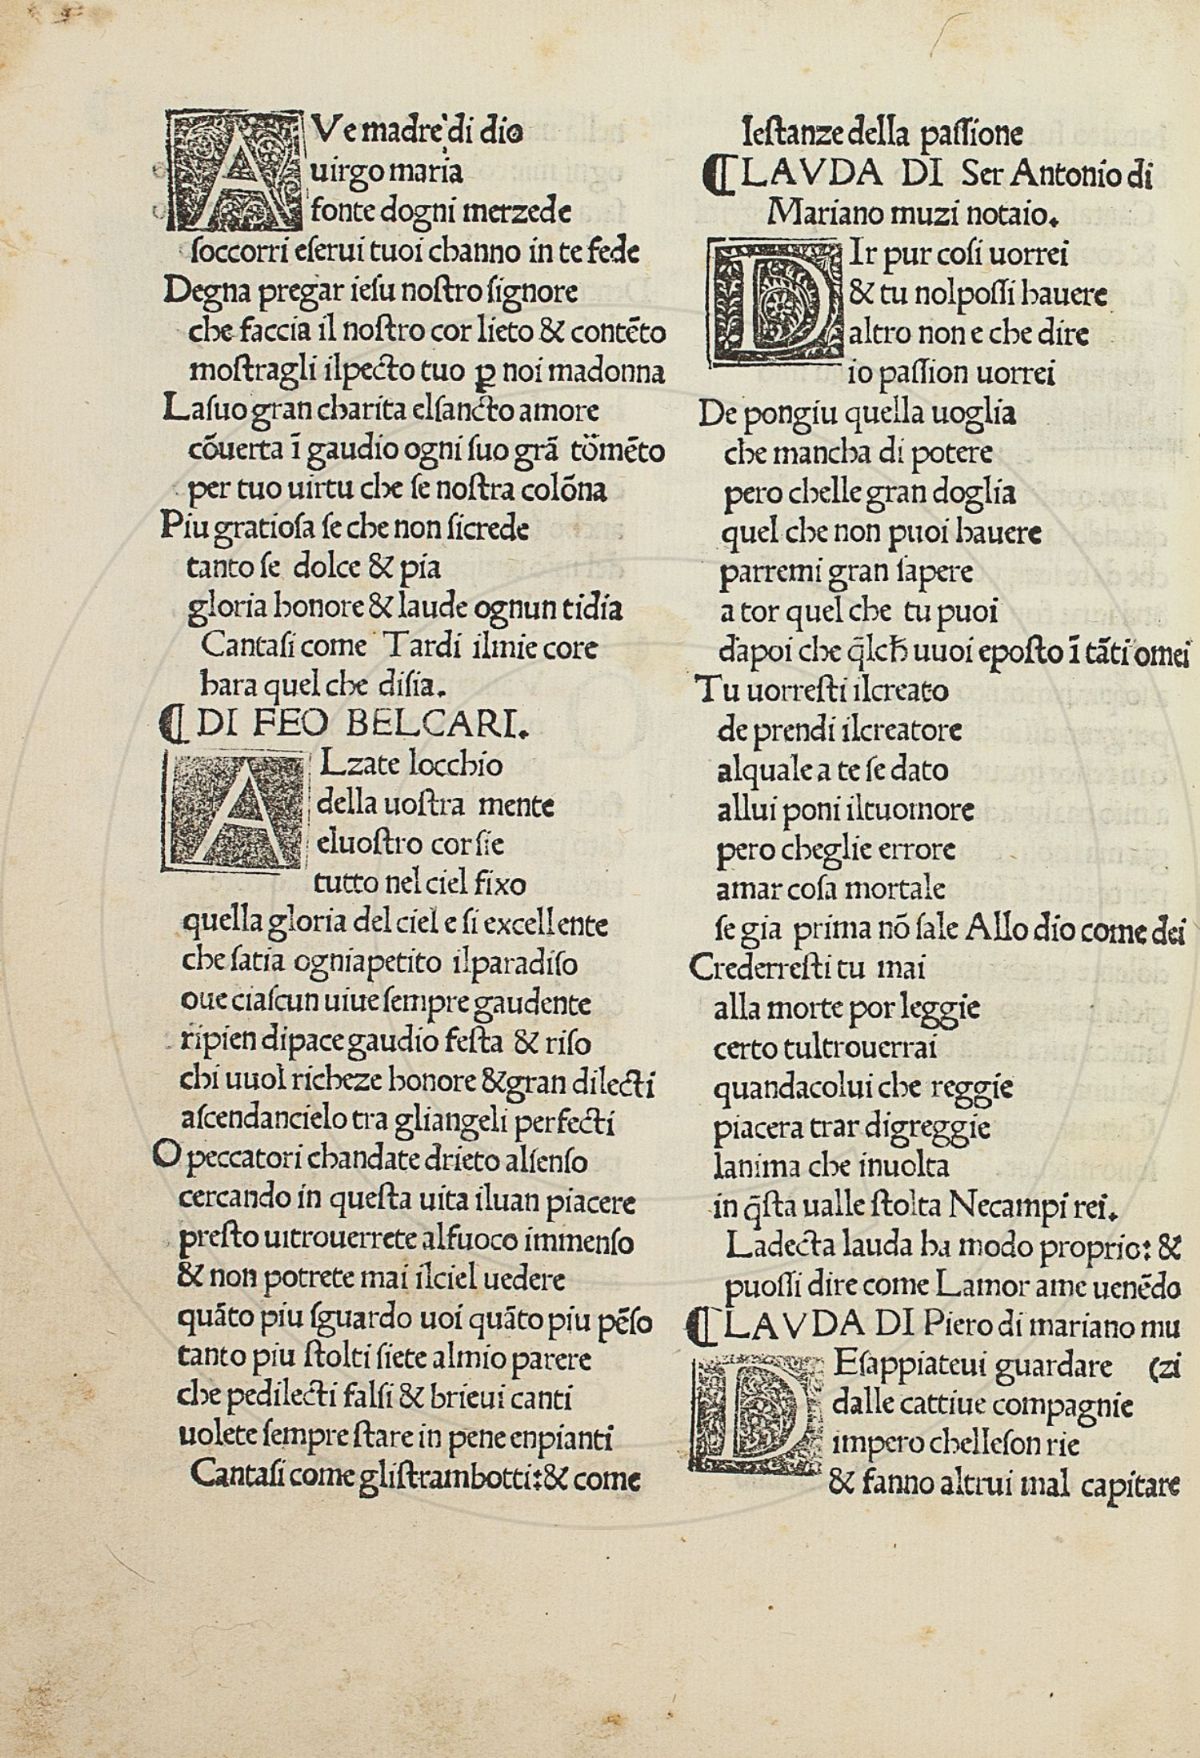 AVe madre di dio
uirgo maria
fonte dogni merzede
ſoccorri eſerui tuoi channo in te fede
Degna pregar ieſu noſtro ſignore
che faccia il noſtro cor lieto & contēto
moſtragli ilpecto tuo ꝑ noi madonna
Laſuo gran charita elſancto amore
cōuerta ī gaudio ogni ſuo grā tormēto
per tuo uirtu che ſe noſtra colōna
Piu gratioſa ſe che non ſicrede
tanto ſe dolce & pia
gloria honore & laude ognun tidia
Cantaſi come Tardi ilmie core
hara quel che diſia.
¶ DI FEO BELCARI.
ALzate locchio
della uoſtra mente
eluoſtro cor ſie
tutto nel ciel fixo
quella gloria del ciel e ſi excellente
che ſatia ogniapetito ilparadiſo
oue ciaſcun uiue ſempre gaudente
ripien dipace gaudio feſta & riſo
chi uuol richeze honore & gran dilecti
aſcendancielo tra gliangeli perfecti
O peccatori chandate drieto alſenſo
cercando in queſta uita iluan piacere
preſto uitrouerrete alfuoco immenſo
& non potrete mai ilciel uedere
quāto piu ſguardo uoi quāto piu pēſo
tanto piu ſtolti ſiete almio parere
che pedilecti falſi & brieui canti
uolete ſempre ſtare in pene enpianti
Cantaſi come gliſtrambotti: & come
leſtanze della paſſione
¶ LAVDA DI Ser Antonio di
Mariano muzi notaio.
DIr pur coſi uorrei
& tu nolpoſſi hauere
altro non e che dire
io paſſion uorrei
De pongiu quella uoglia
che mancha di potere
pero chelle gran doglia
quel che non puoi hauere
parremi gran ſapere
a tor quel che tu puoi
dapoi che q̄lcħ uuoi epoſto ī tāti omei
Tu uorreſti ilcreato
de prendi ilcreatore
alquale a te ſe dato
allui poni iltuomore
pero cheglie errore
amar coſa mortale
ſe gia prima nō ſale Allo dio come dei
Crederreſti tu mai
alla morte por leggie
certo tultrouerrai
quandacolui che reggie
piacera trar digreggie
lanima che inuolta
in q̄ſta ualle ſtolta Necampi rei.
Ladecta lauda ha modo proprio: &
puoſſi dire come Lamor ame uenēdo
¶ LAVDA DI Piero di mariano mu
(zi
DEſappiateui guardare
dalle cattiue compagnie
impero chelleſon rie
& fanno altrui mal capitare